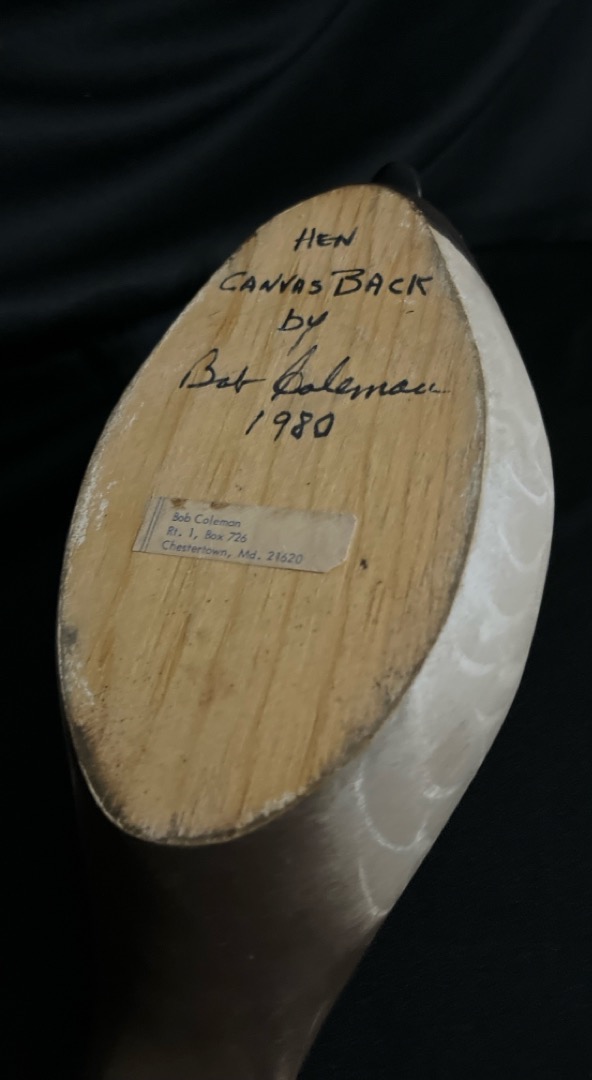 HEN
CANVASBACK
by
Bob Coleman
1980
Bob Coleman
Rt. 1, Box 726
Chestertown, Md. 21620